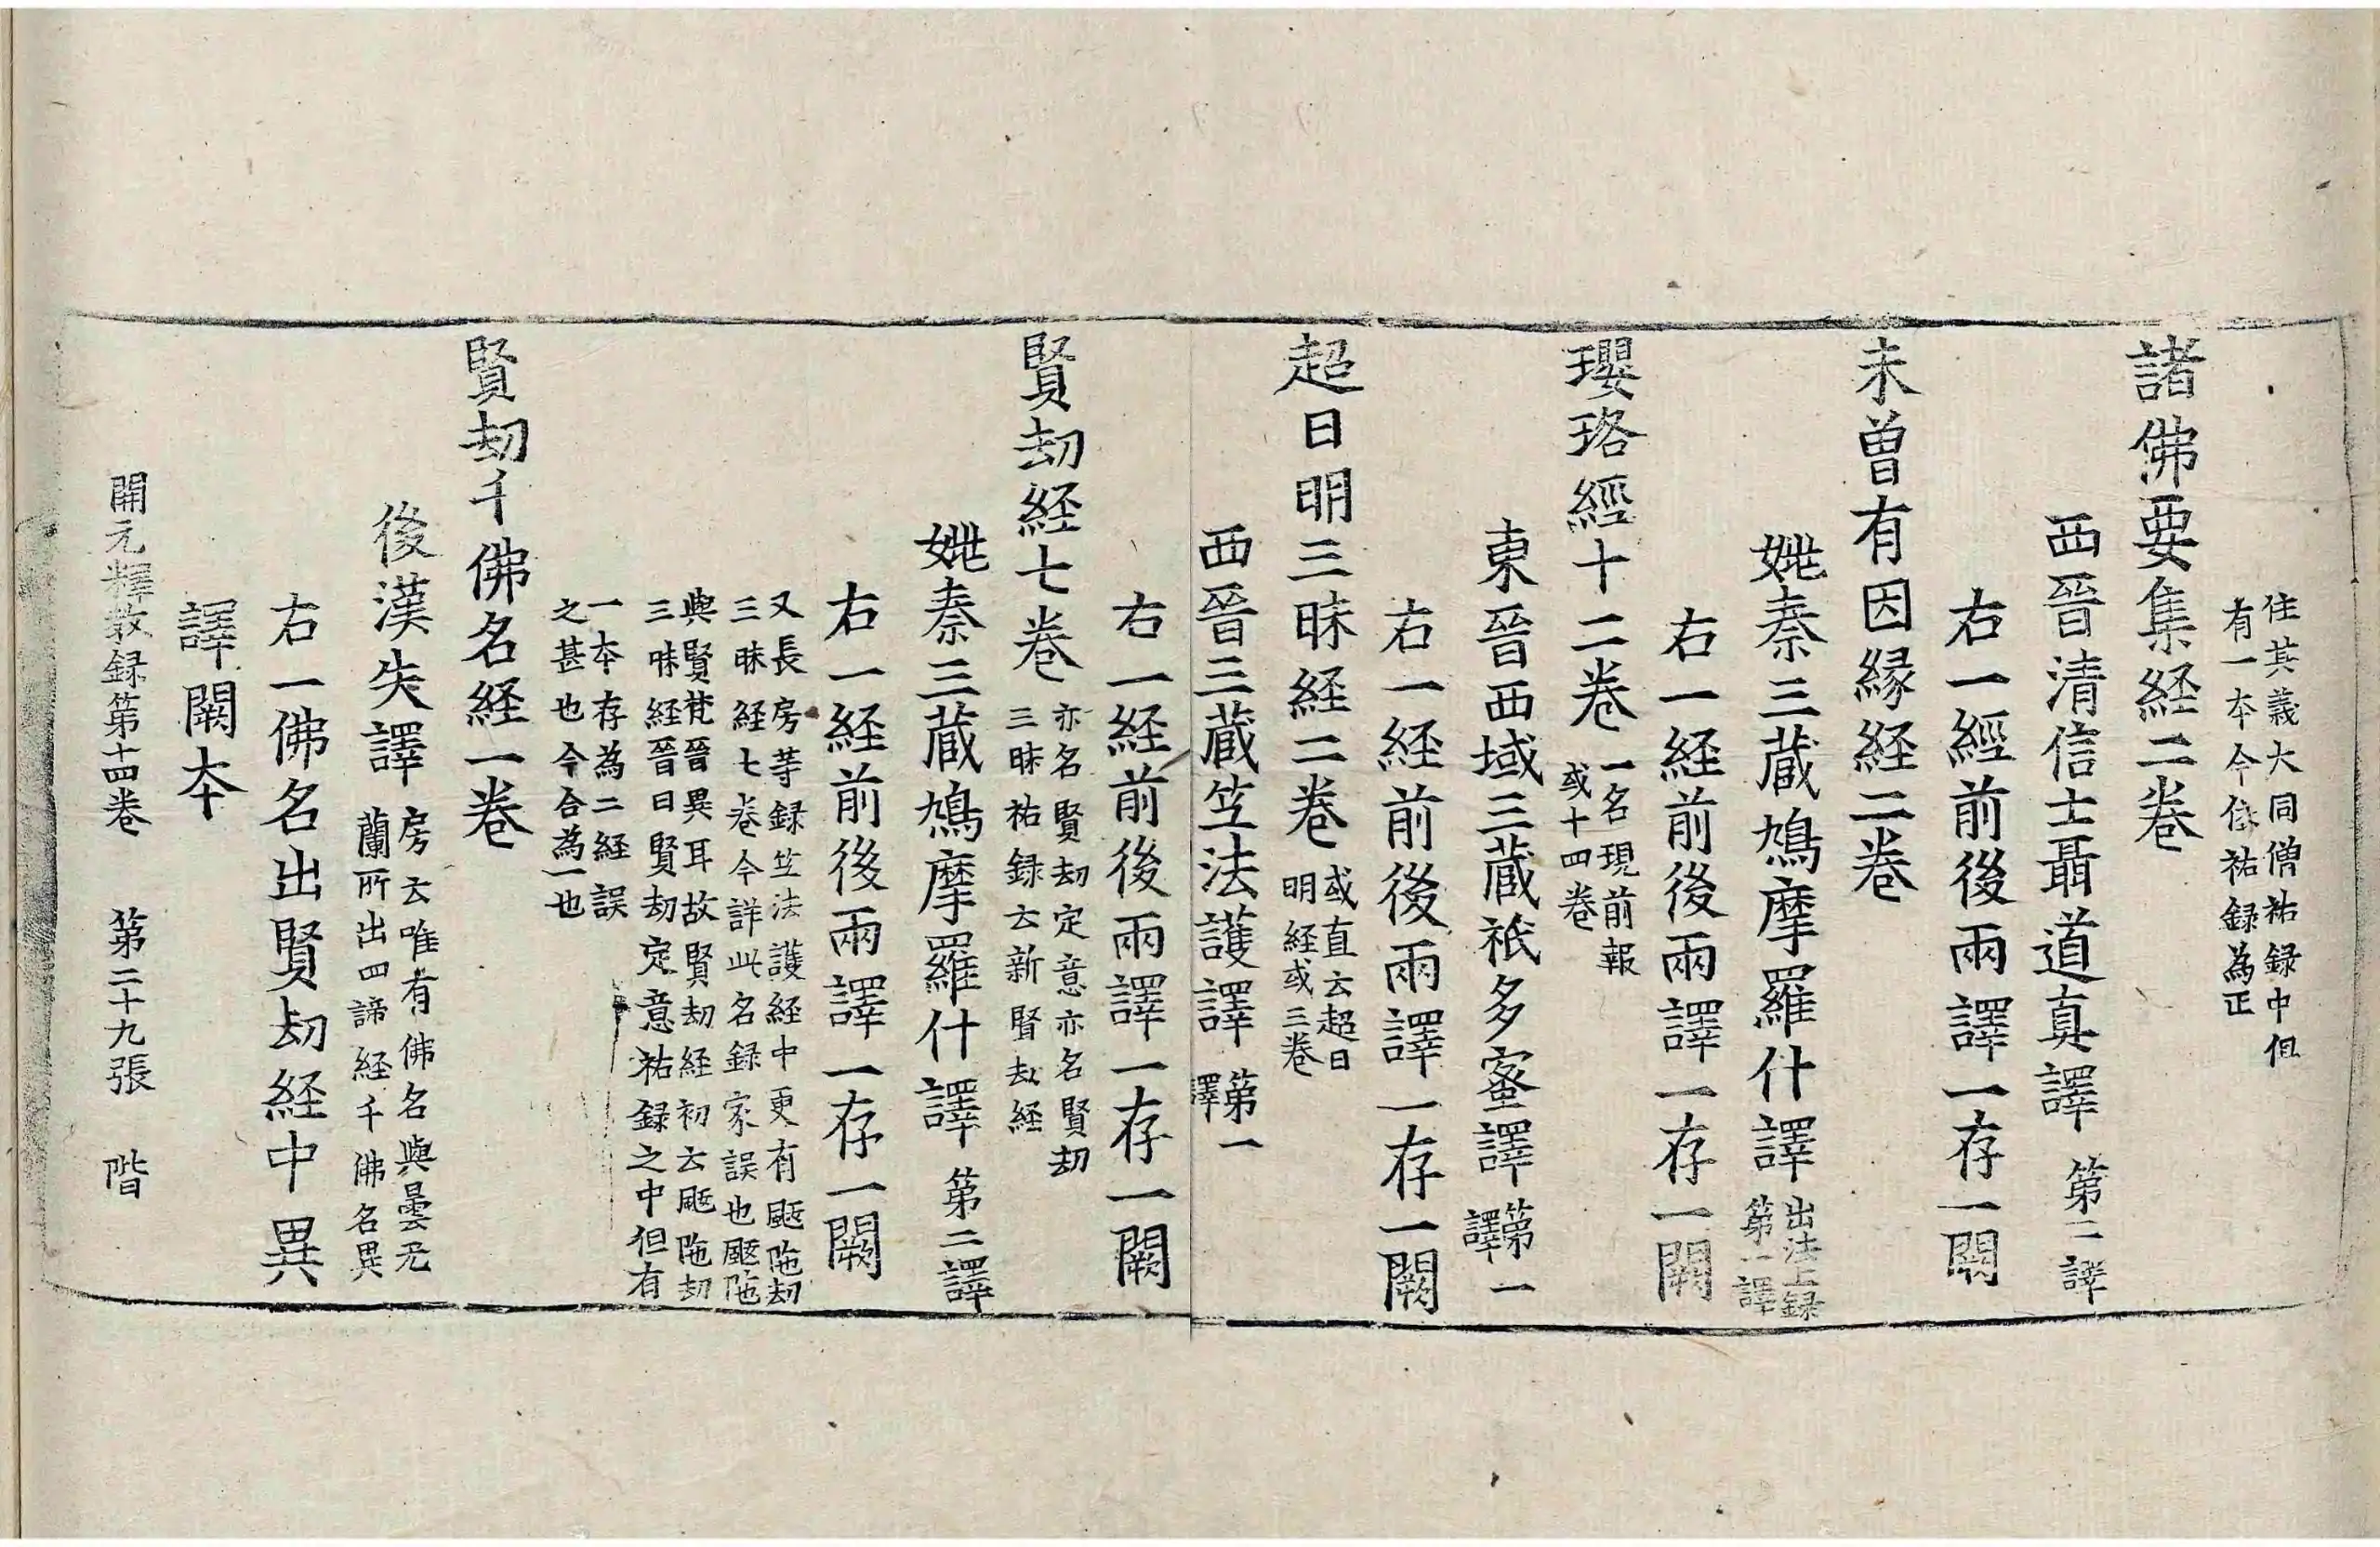 住其義大同僧祐録中但
有一本今依祐録為正
諸佛要集経二卷
西晉清信士聶道真譯 第二譯
右一經前後兩譯一存一闕
未曽有因縁経二卷
姚秦三蔵鳩摩羅什譯 出法上録
第一譯
右一経前後兩譯一存一闕
瓔珞經十二卷 一名現前報
或十四卷
東晉西域三蔵祇多蜜譯 第一
譯
右一経前後兩譯一存一闕
超日明三昧経二卷 或直云超日
明経或三卷
西晉三蔵竺法護譯 第一
譯
右一経前後兩譯一存一闕
賢劫経七卷 亦名賢劫定意亦名賢劫
三昧祐録云新賢劫経
姚秦三蔵鳩摩羅什譯 第二譯
右一経前後兩譯一存一闕
又長房等録竺法護経中更有颰陁劫
三昧経七卷今詳此名録家誤也颰陁
與賢梵晉異耳故賢劫経初云颰陁劫
三昧経晉曰賢劫定意祐録之中但有
一本存為二経誤
之甚也今合為一也
賢劫千佛名経一卷
後漢失譯 房云唯有佛名與曇无
蘭所出四諦経千佛名異
右一佛名出賢劫経中異
譯闕本
開元釋教録第十四卷 第二十九張 階